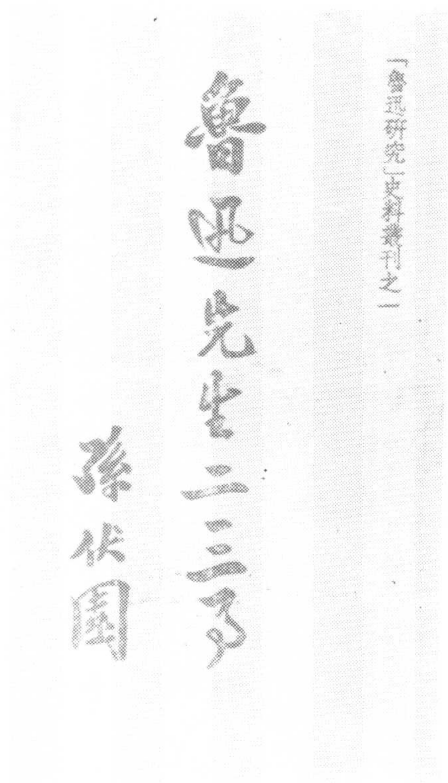 「魯迅研究」史料叢刊之一
魯迅先生二三事
孫伏園